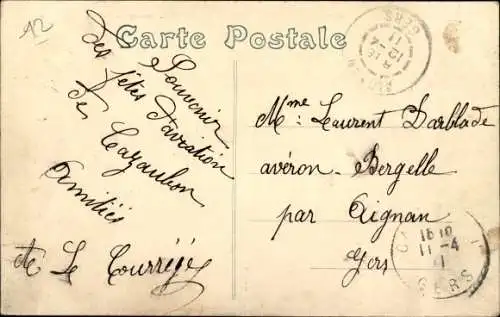 12
Carte Postale
Souvenir
des fêtes d'aviation
de Cazaubon
Amitiés
Le Courrège
Mme: Laurent Darblade
avéron-Bergelle
par Aignan
Gers
GERS
12-4
11
16 10
11-4
11
GERS